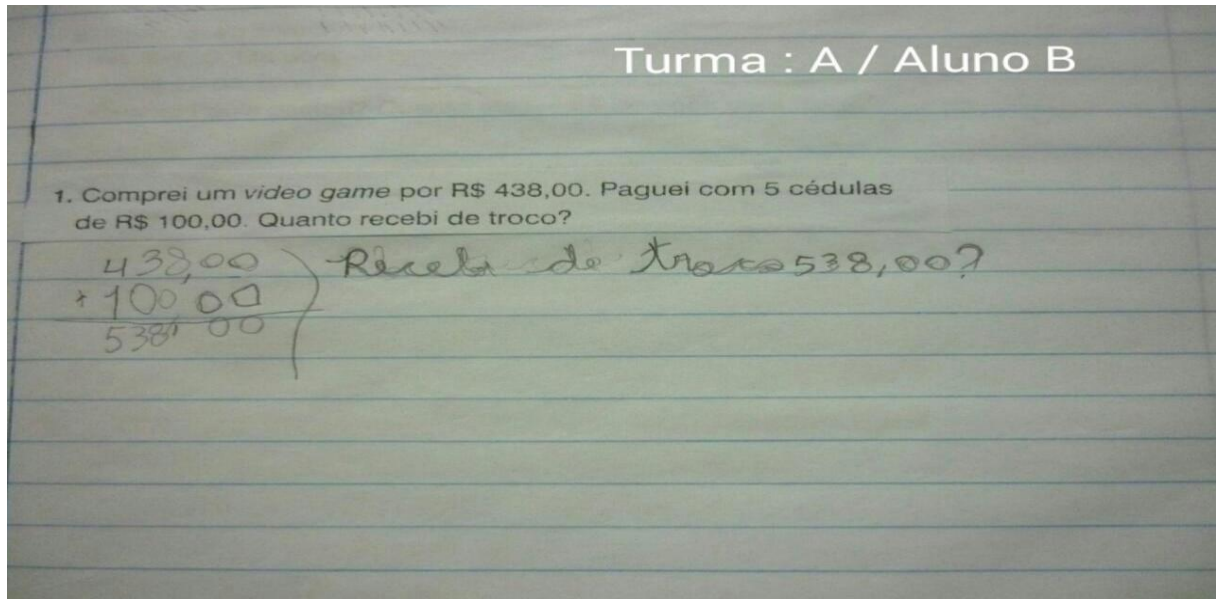 Turma : A / Aluno B
1. Comprei um video game por R$ 438,00. Paguei com 5 cédulas
de R$ 100,00. Quanto recebi de troco?
438,00 Recebi de troco 538,00?
+ 100,00
538,00